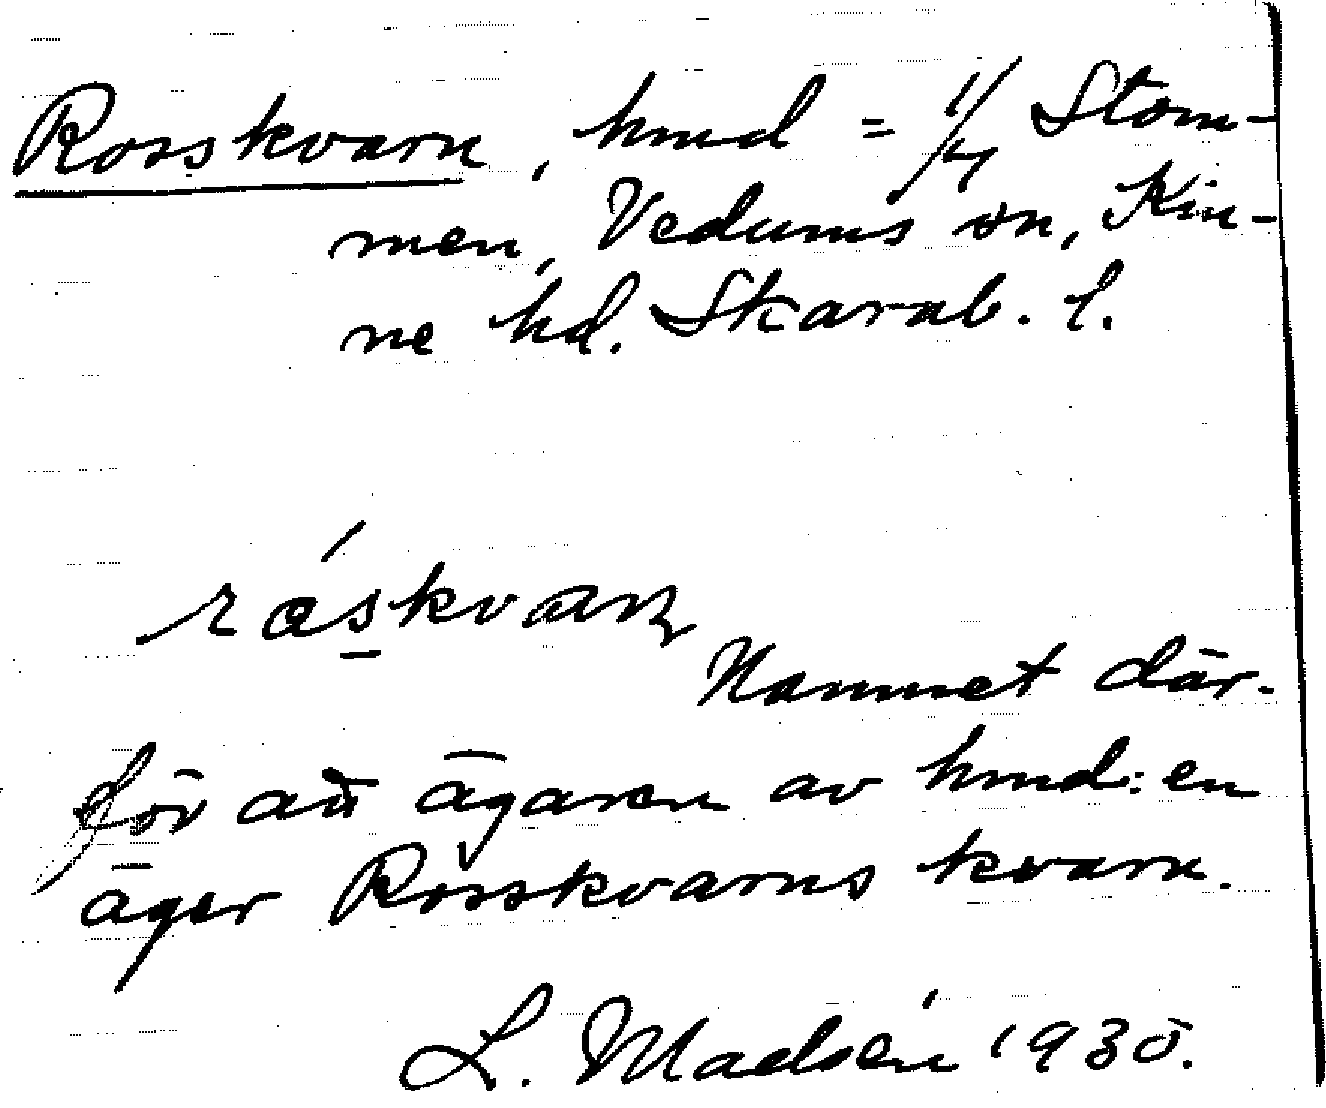 Rosskvarn, hmd = 1/4 Stom-
men, Vedums sn, Kin-
ne hd. Skarab. l.
råskvarn
Namnet där-
för att ägaren av hmd:en
äger Rosskvarns kvarn.
L. Madsén 1930.